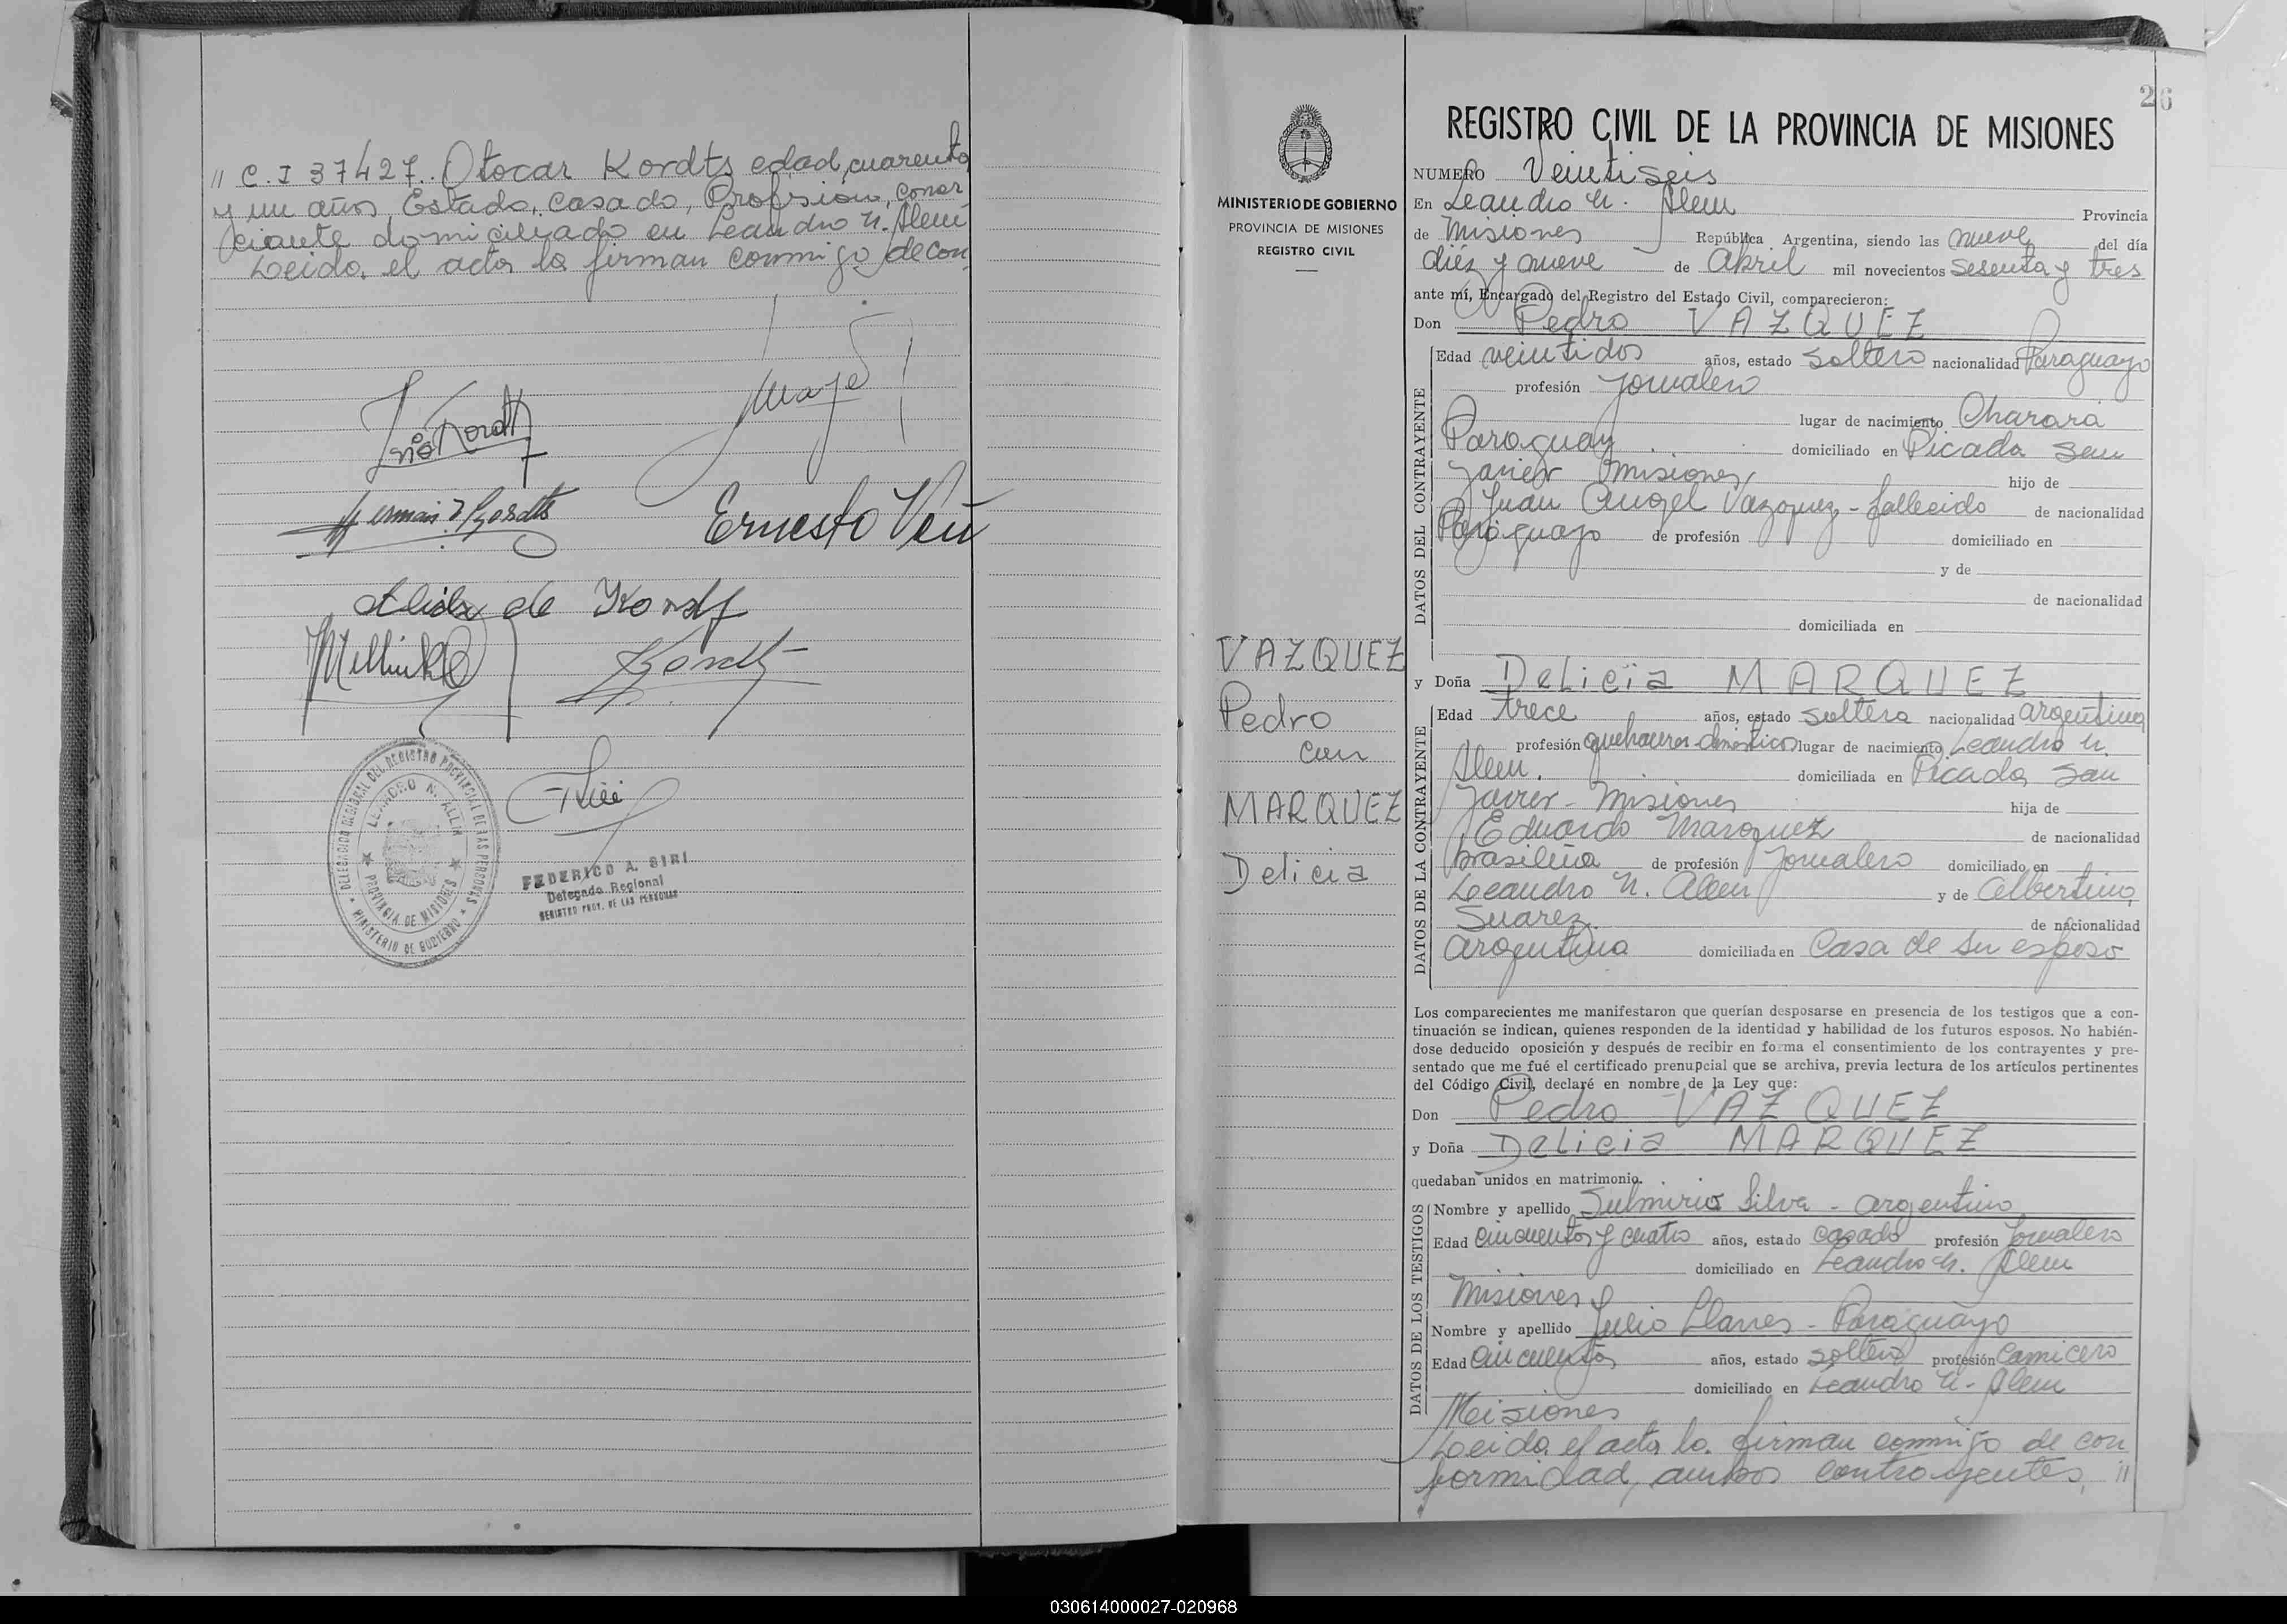 " C.I 37427. Otocar Kordts edad, cuarenta
y un años, Estado, Casado, Profesión, Comer
ciante domiciliado en Leandro N. Alem
Leido, el acta la firman conmigo de con
Ernesto
de Kordt
DELEGACION REGIONAL DEL REGISTRO PROVINCIAL DE LAS PERSONAS
LEANDRO N. ALEM
PROVINCIA DE MISIONES
MINISTERIO DE GOBIERNO
FEDERICO A. SIRI
Delegado Regional
REGISTRO PROV. DE LAS PERSONAS
26
MINISTERIO DE GOBIERNO
PROVINCIA DE MISIONES
REGISTRO CIVIL
VAZQUEZ
Pedro
con
MARQUEZ
Delicia
REGISTRO CIVIL DE LA PROVINCIA DE MISIONES
NUMERO Veinti seis
En Leandro N. Alem Provincia
de Misiones República Argentina, siendo las nueve del día
diéz y nueve de Abril mil novecientos Sesenta y tres
ante mí, Encargado del Registro del Estado Civil, comparecieron:
Don Pedro VAZQUEZ
DATOS DEL CONTRAYENTE
Edad veintidos años, estado Soltero nacionalidad Paraguayo
profesión Jornalero
lugar de nacimiento Charara
Paraguay domiciliado en Picada San
Javier Misiones, hijo de
Juan Angel Vazquez - fallecido de nacionalidad
Paraguayo de profesión domiciliado en
y de
de nacionalidad
domiciliada en
y Doña Delicia MARQUEZ
DATOS DE LA CONTRAYENTE
Edad trece años, estado Soltera nacionalidad argentina
profesión quehaceres domésticos lugar de nacimiento Leandro N.
Alem. domiciliada en Picada San
Javier - Misiones hija de
Eduardo Marquez de nacionalidad
brasileña de profesión Jornalero domiciliado en
Leandro N. Alem y de Albertina
Suarez de nacionalidad
argentina domiciliada en Casa de su esposo
Los comparecientes me manifestaron que querían desposarse en presencia de los testigos que a con-
tinuación se indican, quienes responden de la identidad y habilidad de los futuros esposos. No habién-
dose deducido oposición y después de recibir en forma el consentimiento de los contrayentes y pre-
sentado que me fué el certificado prenupcial que se archiva, previa lectura de los artículos pertinentes
del Código Civil, declaré en nombre de la Ley que:
Don Pedro VAZQUEZ
y Doña Delicia MARQUEZ
quedaban unidos en matrimonio.
DATOS DE LOS TESTIGOS
Nombre y apellido Sulmirio Silva - argentino
Edad cincuenta y cuatro años, estado casado profesión Jornalero
domiciliado en Leandro N. Alem
Misiones
Nombre y apellido Julio Llanes - Paraguayo
Edad Cincuenta años, estado soltero profesión Carnicero
domiciliado en Leandro N. Alem
Misiones
Leido el acta la firman conmigo de con
formidad, ambos contrayentes, "
030614000027-020968